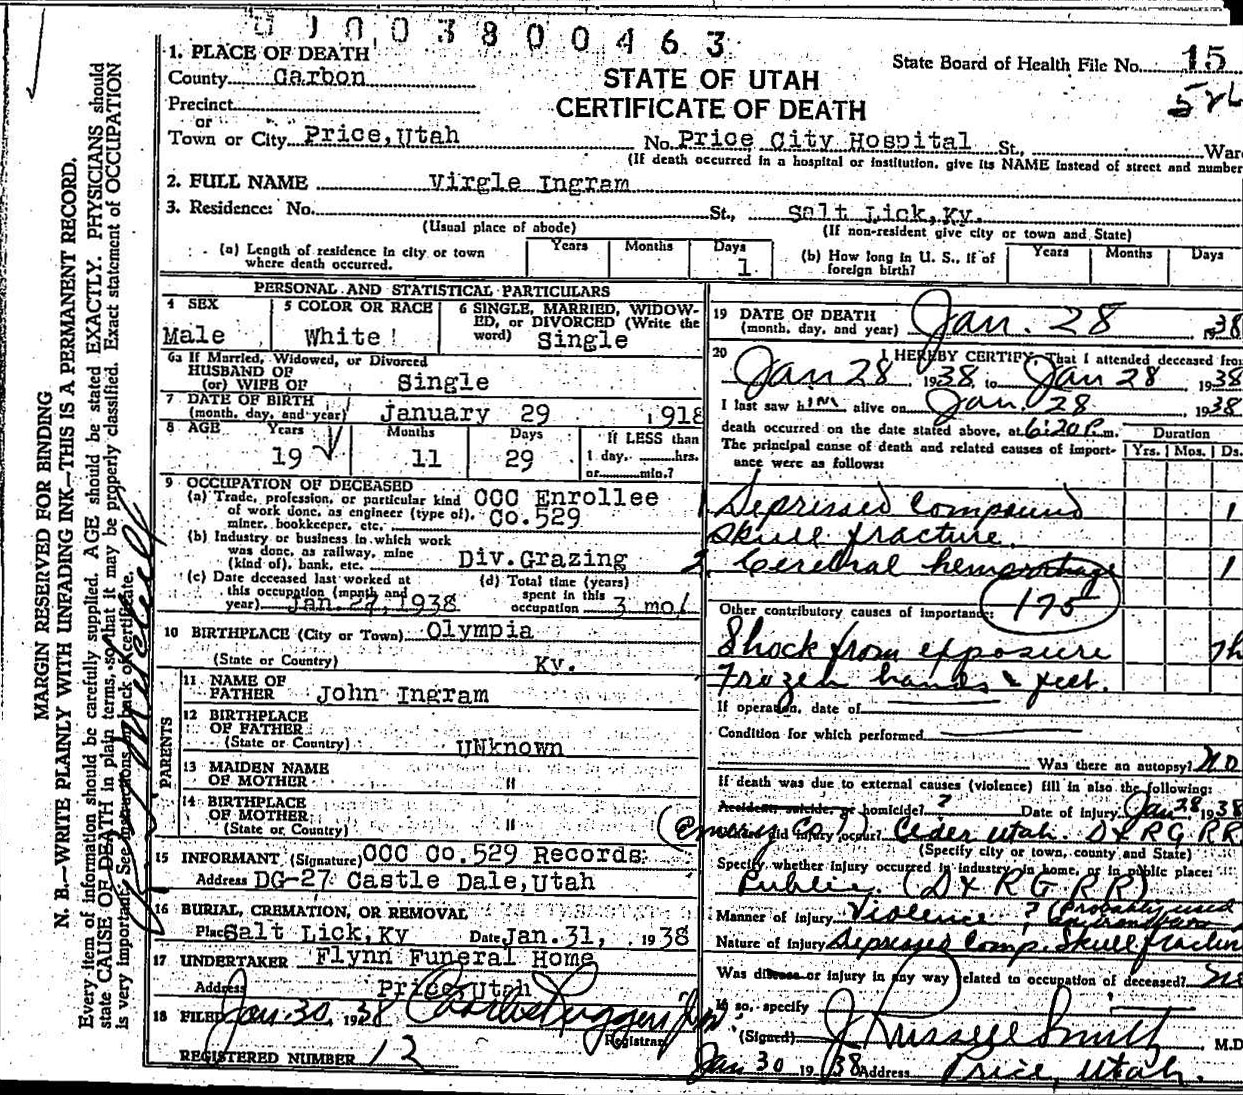 0100380 0463
1. PLACE OF DEATH
County Carbon
Precinct
or
Town or City Price, Utah
STATE OF UTAH
CERTIFICATE OF DEATH
State Board of Health File No. 15
No. Price City Hospital St., War
(If death occurred in a hospital or institution, give its NAME instead of street and number
2. FULL NAME Virgle Ingram
3. Residence: No. St., Salt Lick, Ky.
(Usual place of abode) (If non-resident give city or town and State)
(a) Length of residence in city or town where death occurred. Years Months Days 1
(b) How long in U. S., if of foreign birth? Years Months Days
PERSONAL AND STATISTICAL PARTICULARS
4 SEX Male
5 COLOR OR RACE White
6 SINGLE, MARRIED, WIDOWED, or DIVORCED (Write the word) Single
6a If Married, Widowed, or Divorced
HUSBAND OF
(or) WIFE OF Single
7 DATE OF BIRTH
(month, day, and year) January 29 1918
8 AGE Years 19 Months 11 Days 29 If LESS than 1 day, hrs. or min.?
9 OCCUPATION OF DECEASED
(a) Trade, profession, or particular kind of work done, as engineer (type of), miner, bookkeeper, etc. CCC Enrollee Co.529
(b) Industry or business in which work was done, as railway, mine (kind of), bank, etc. Div.Grazing
(c) Date deceased last worked at this occupation (month and year) Jan.27,1938
(d) Total time (years) spent in this occupation 3 mo
10 BIRTHPLACE (City or Town) Olympia
(State or Country) Ky.
PARENTS
11 NAME OF FATHER John Ingram
12 BIRTHPLACE OF FATHER
(State or Country) UNknown
13 MAIDEN NAME OF MOTHER "
14 BIRTHPLACE OF MOTHER
(State or Country) "
15 INFORMANT (Signature) CCC Co.529 Records
Address DG-27 Castle Dale, Utah
16 BURIAL, CREMATION, OR REMOVAL
Place Salt Lick, Ky Date Jan.31, 1938
17 UNDERTAKER Flynn Funeral Home
Address Price, Utah
18 FILED Jan. 30, 1938
Registrar
REGISTERED NUMBER 12
19 DATE OF DEATH
(month, day, and year) Jan. 28 1938
20 I HEREBY CERTIFY, That I attended deceased from
Jan 28 1938 to Jan 28 1938
I last saw him alive on Jan. 28 1938
death occurred on the date stated above, at 6:20 P.m.
The principal cause of death and related causes of importance were as follows:
Duration
Yrs. Mos. Ds.
1 Depressed Compound 1
Skull fracture
2 Cerebral hemorrhage 1
175
Other contributory causes of importance:
Shock from exposure
Frozen hands & feet.
If operation, date of
Condition for which performed
Was there an autopsy? No
If death was due to external causes (violence) fill in also the following:
Accident, suicide, or homicide? ? Date of injury Jan 28 1938
(Emery Co) Where did injury occur? Ceder Utah. D & R G RR
(Specify city or town, county and State)
Specify whether injury occurred in industry, in home, or in public place:
Public. (D & R G RR)
Manner of injury Violence ? (Probably used
Nature of injury Depressed Comp. Skull fracture
Was disease or injury in any way related to occupation of deceased? No
If so, specify
(Signed) J Russell Smith M.D
Jan 30 1938 Address Price, Utah.
MARGIN RESERVED FOR BINDING
N. B.—WRITE PLAINLY WITH UNFADING INK—THIS IS A PERMANENT RECORD.
Every item of information should be carefully supplied. AGE should be stated EXACTLY. PHYSICIANS should
state CAUSE OF DEATH in plain terms, so that it may be properly classified. Exact statement of OCCUPATION
is very important. See instructions on back of certificate.